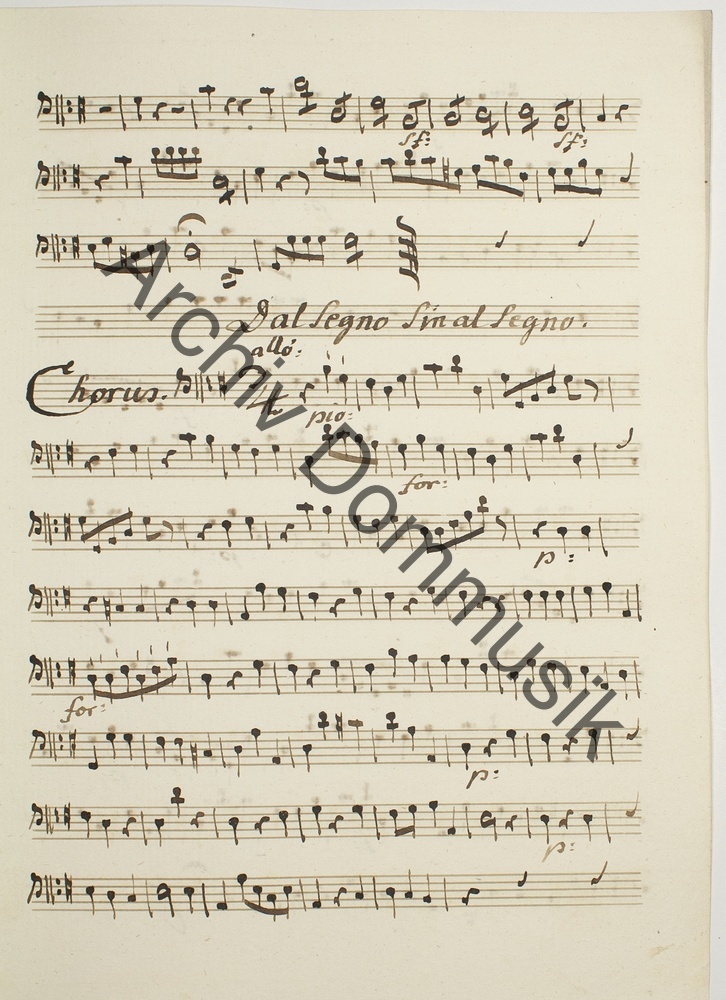 sf: sf:
Dal Segno Sin al Segno.
allo:
Chorus.
pio:
for:
p:
for:
p:
p:
Archiv Dommusik